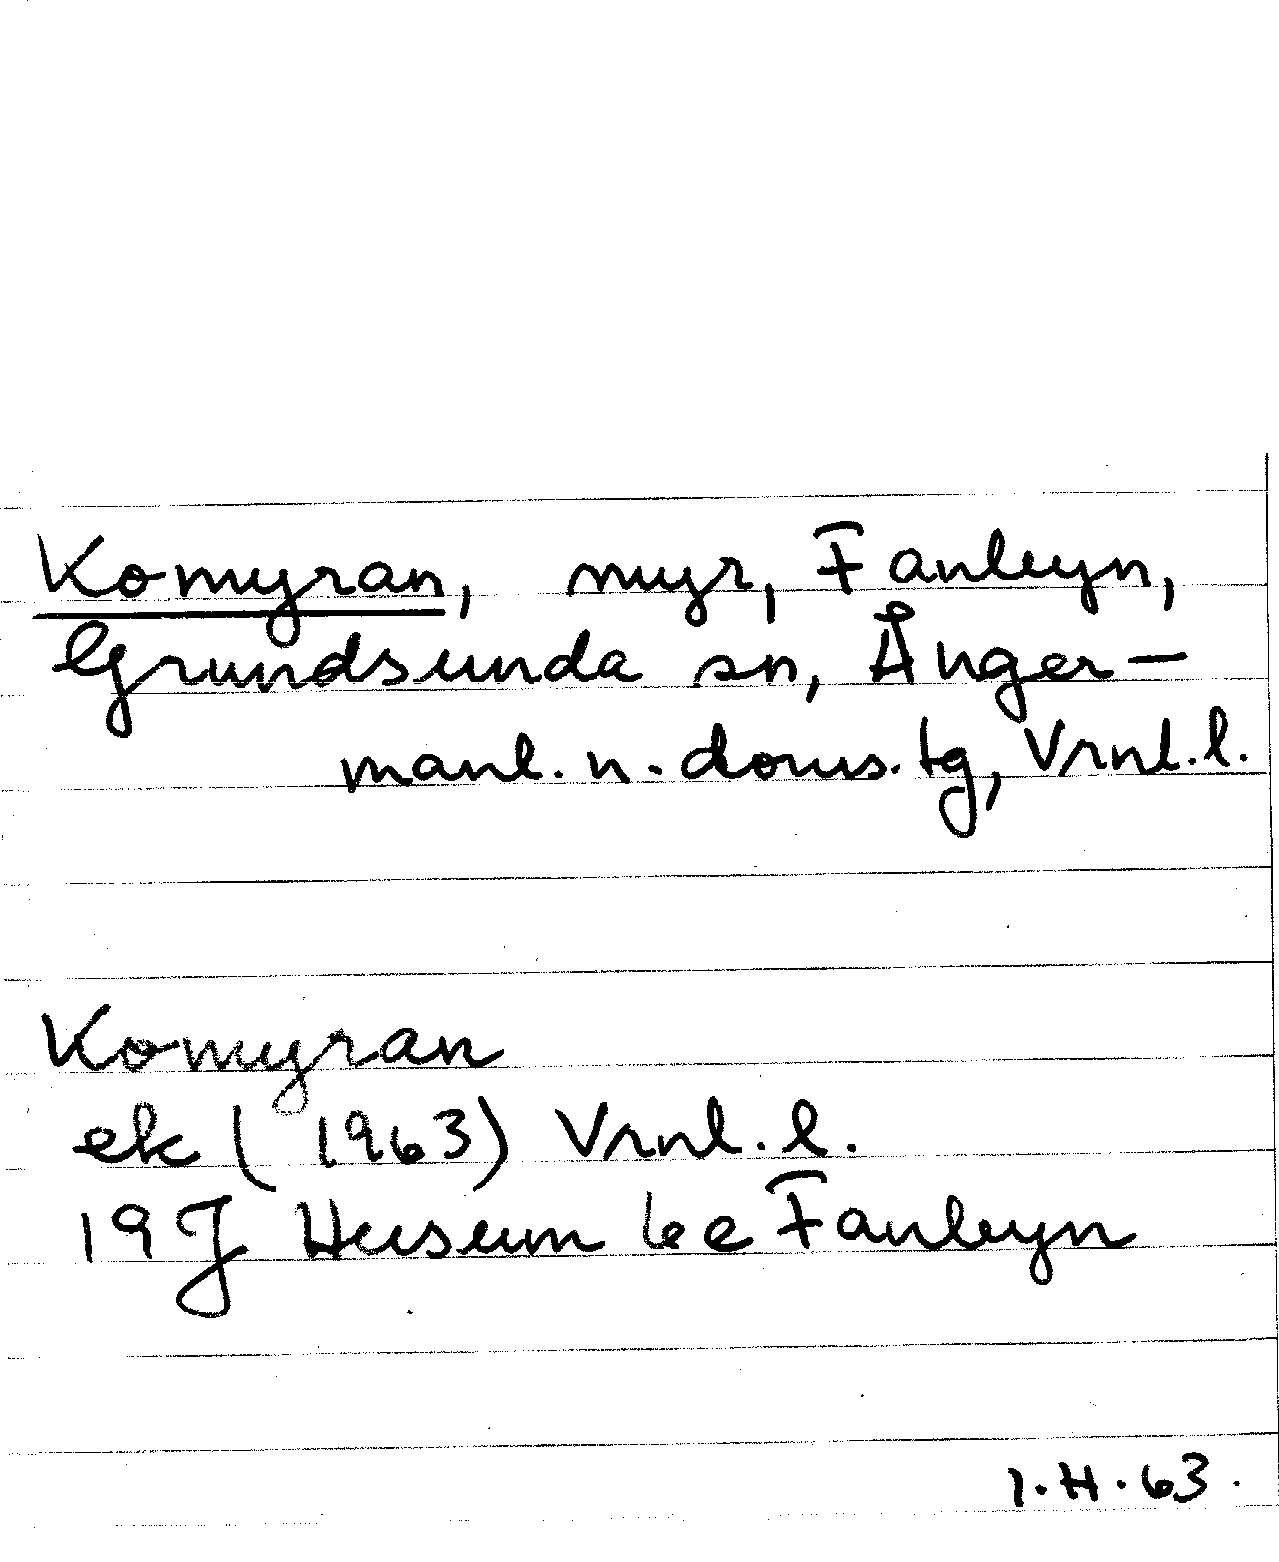 Komyran, myr, Fanbyn,
Grundsunda sn, Ånger-
manl. n. doms. tg, Vrnl. l.
Komyran
ek (1963) Vrnl. l.
19J Husum be Fanbyn
I.H. 63.